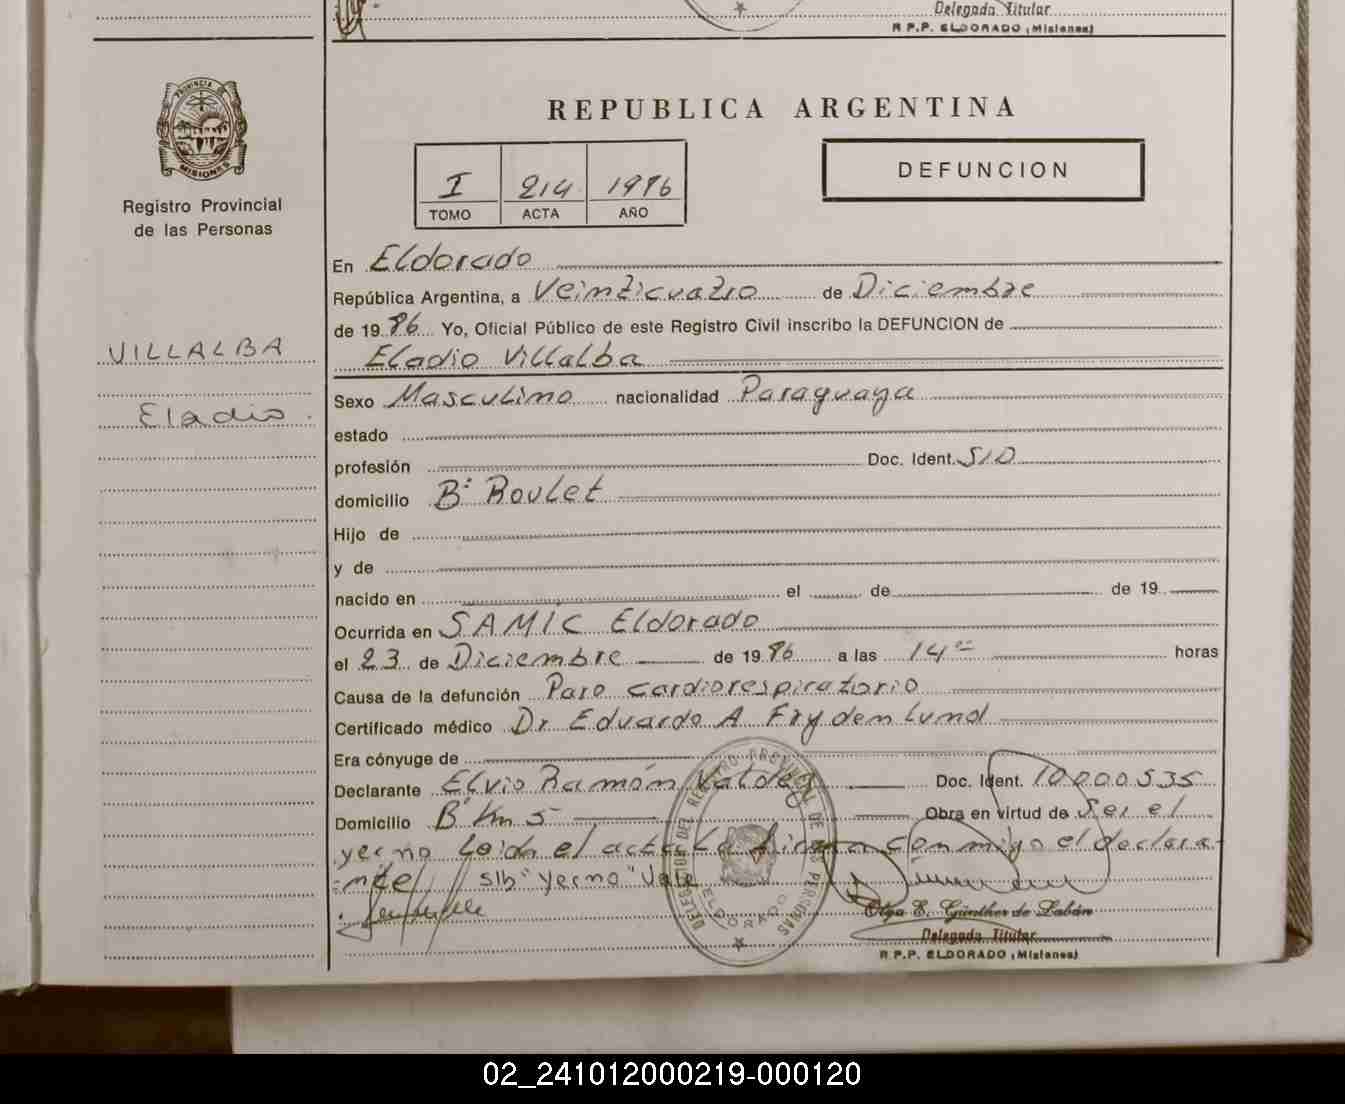 Delegada Titular
R.P.P. ELDORADO (Misiones)
PROVINCIA DE
MISIONES
Registro Provincial
de las Personas
VILLALBA
Eladio.
REPUBLICA ARGENTINA
I 214 1986
TOMO ACTA AÑO
DEFUNCION
En Eldorado
República Argentina, a Veinticuatro de Diciembre
de 19 86 Yo, Oficial Público de este Registro Civil inscribo la DEFUNCION de
Eladio Villalba
Sexo Masculino nacionalidad Paraguaya
estado
profesión Doc. Ident. S/D
domicilio Bº Roulet
Hijo de
y de
nacido en el de de 19
Ocurrida en SAMIC Eldorado
el 23 de Diciembre de 19 86 a las 14 horas
Causa de la defunción Paro cardiorespiratorio
Certificado médico Dr Eduardo A Frydenlund
Era cónyuge de
Declarante Elvio Ramón Valdez Doc. Ident. 10000535
Domicilio Bº Km 5 Obra en virtud de Ser el
yerno Leida el acta la firma conmigo el declara-
-nte// s/b "yerno" Vale
DELEGACION DEL REGISTRO PROVINCIAL DE LAS PERSONAS
ELDORADO
Olga E. Günther de Labán
Delegada Titular
R.P.P. ELDORADO (Misiones)
02_241012000219-000120